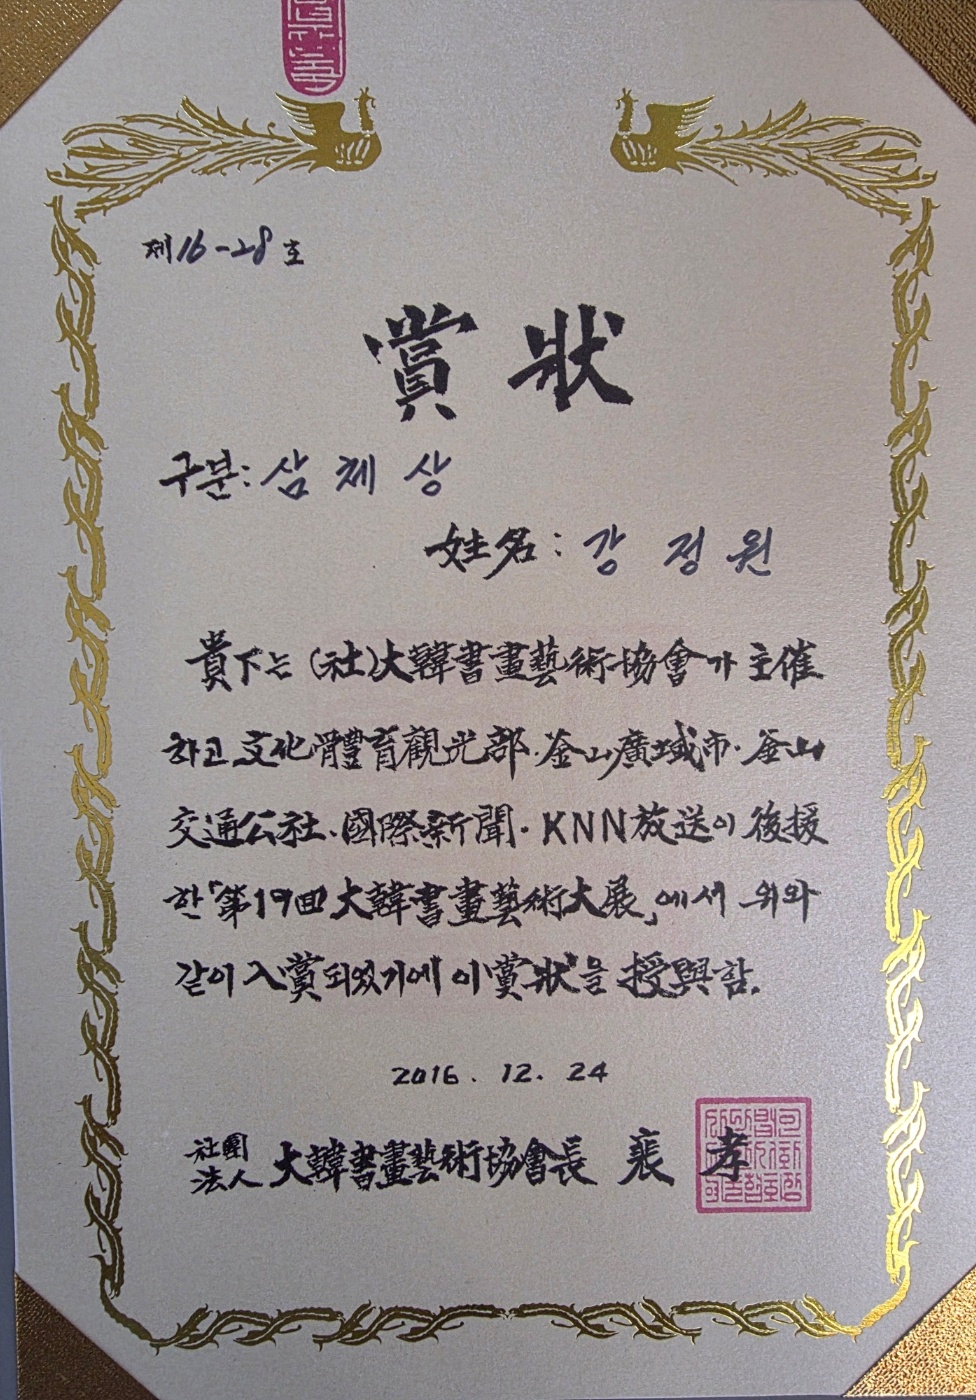 제16-28호
賞狀
구분: 삼체상
姓名: 강정원
貴下는 (社)大韓書畫藝術協會가 主催
하고 文化體育觀光部·釜山廣域市·釜山
交通公社·國際新聞·KNN放送이 後援
한「第19回 大韓書畫藝術大展」에서 위와
같이 入賞되었기에 이 賞狀을 授與함.
2016. 12. 24
社團
法人 大韓書畫藝術協會長 裵 孝